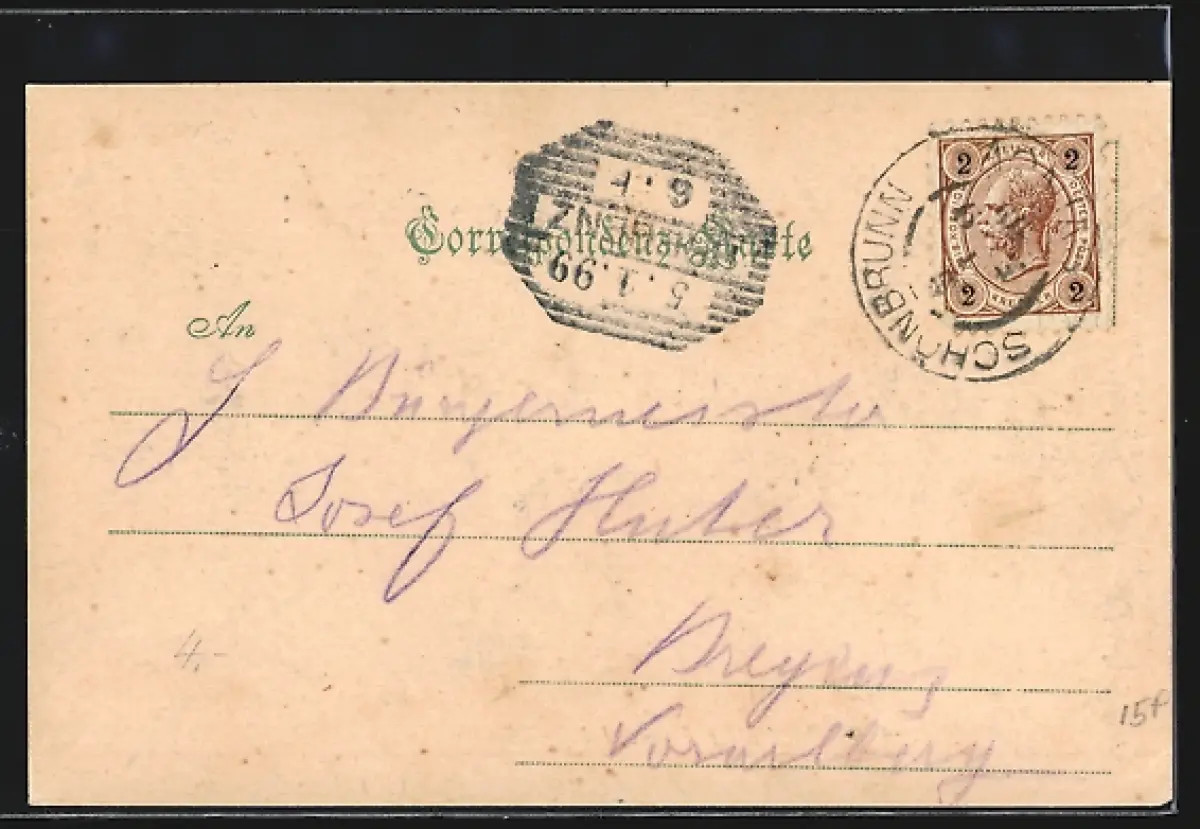 Correspondenz-Karte
6.F
BREGENZ
5.1.99
SCHÖNBRUNN
2 2
2 2
An
J Bürgermeister
Josef Huber
Bregenz
Vorarlberg
4.-
15f